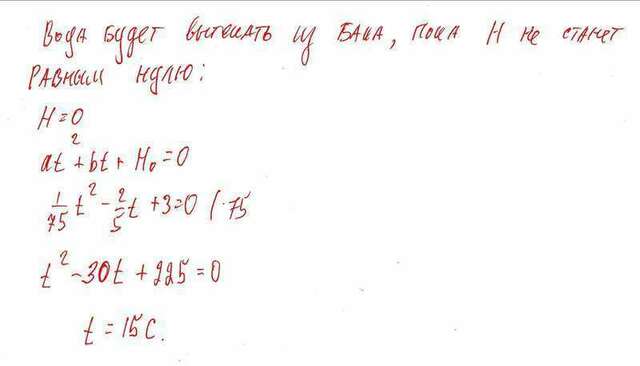 Вода будет вытекать из бака, пока H не станет
равным нулю:
H=0
at²+bt+H₀=0
1/75 t² - 2/5 t +3=0 (·75
t²-30t+225=0
t=15с.